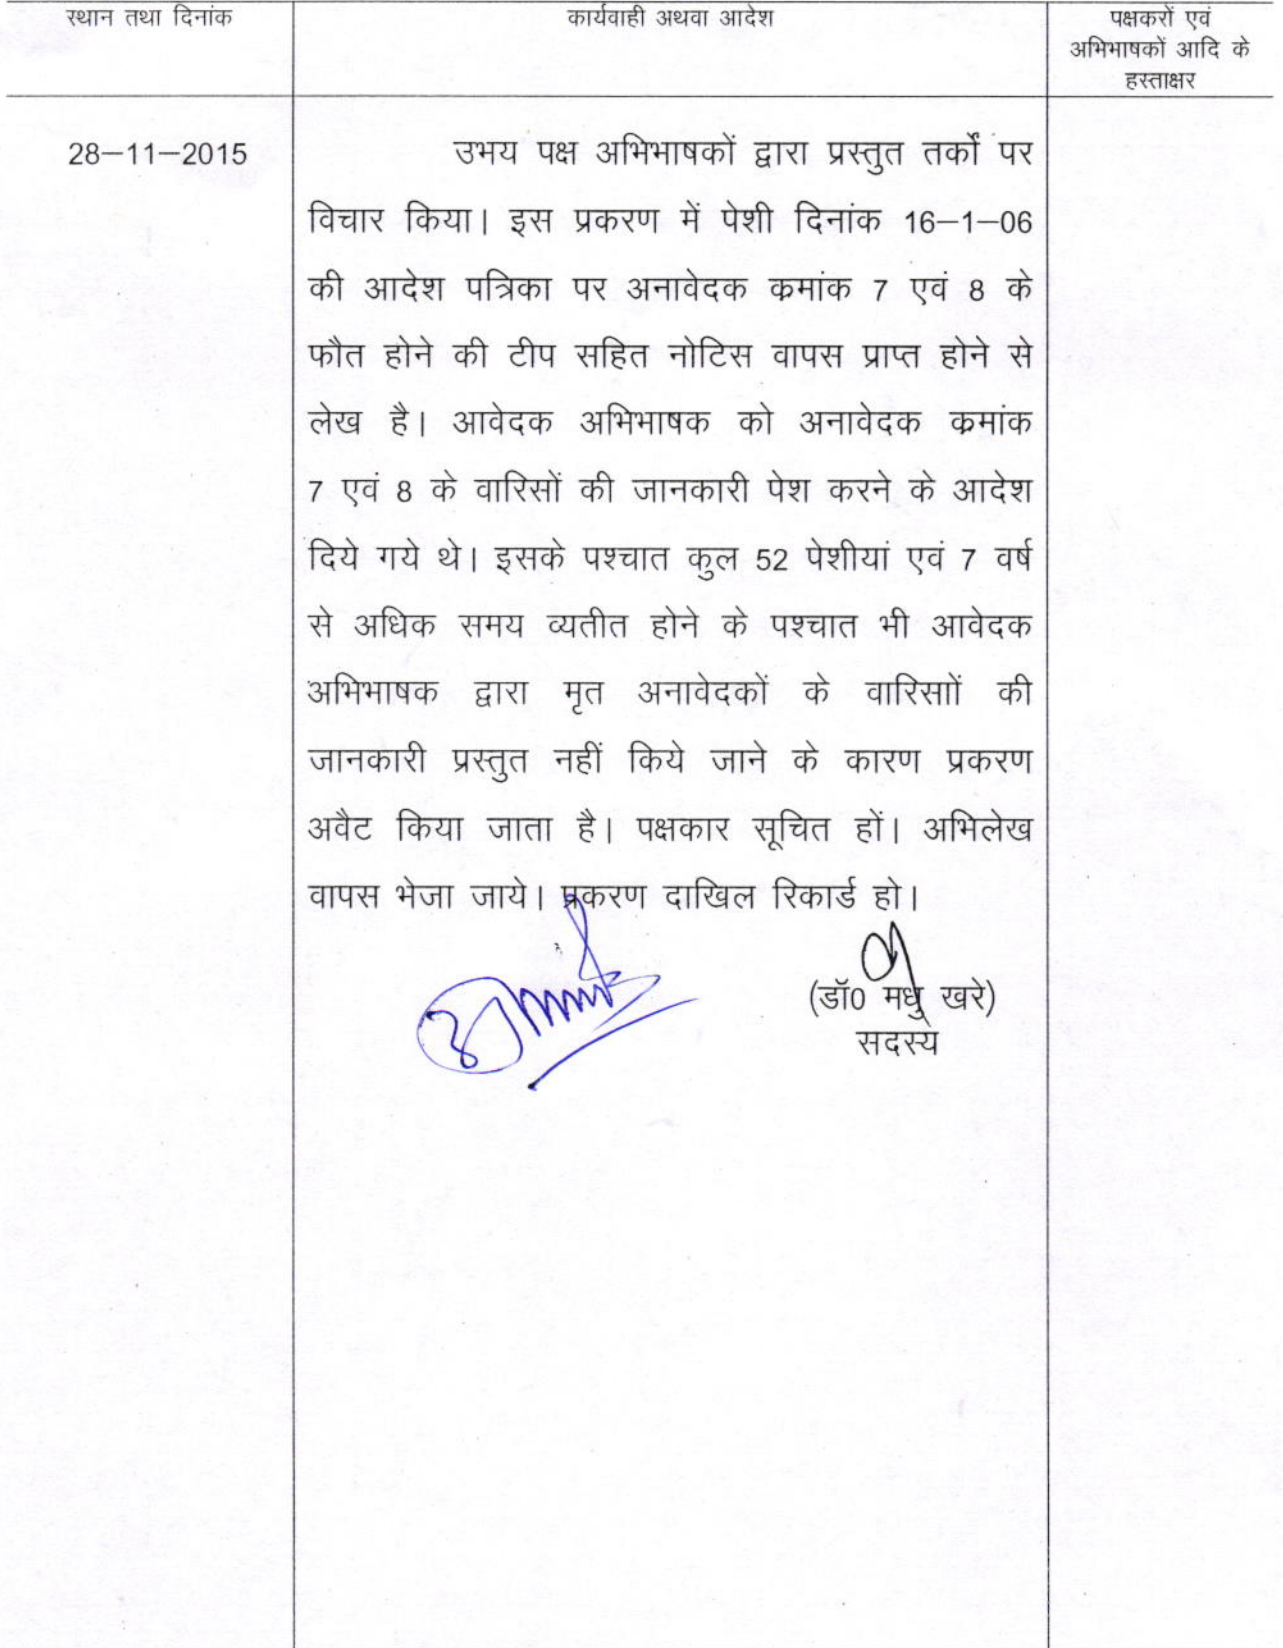 स्थान तथा दिनांक
कार्यवाही अथवा आदेश
पक्षकरों एवं
अभिभाषकों आदि के
हस्ताक्षर
28–11–2015
उभय पक्ष अभिभाषकों द्वारा प्रस्तुत तर्कों पर
विचार किया। इस प्रकरण में पेशी दिनांक 16–1–06
की आदेश पत्रिका पर अनावेदक कमांक 7 एवं 8 के
फौत होने की टीप सहित नोटिस वापस प्राप्त होने से
लेख है। आवेदक अभिभाषक को अनावेदक कमांक
7 एवं 8 के वारिसों की जानकारी पेश करने के आदेश
दिये गये थे। इसके पश्चात कुल 52 पेशीयां एवं 7 वर्ष
से अधिक समय व्यतीत होने के पश्चात भी आवेदक
अभिभाषक द्वारा मृत अनावेदकों के वारिसाों की
जानकारी प्रस्तुत नहीं किये जाने के कारण प्रकरण
अवैट किया जाता है। पक्षकार सूचित हों। अभिलेख
वापस भेजा जाये। प्रकरण दाखिल रिकार्ड हो।
(डॉ0 मधु खरे)
सदस्य